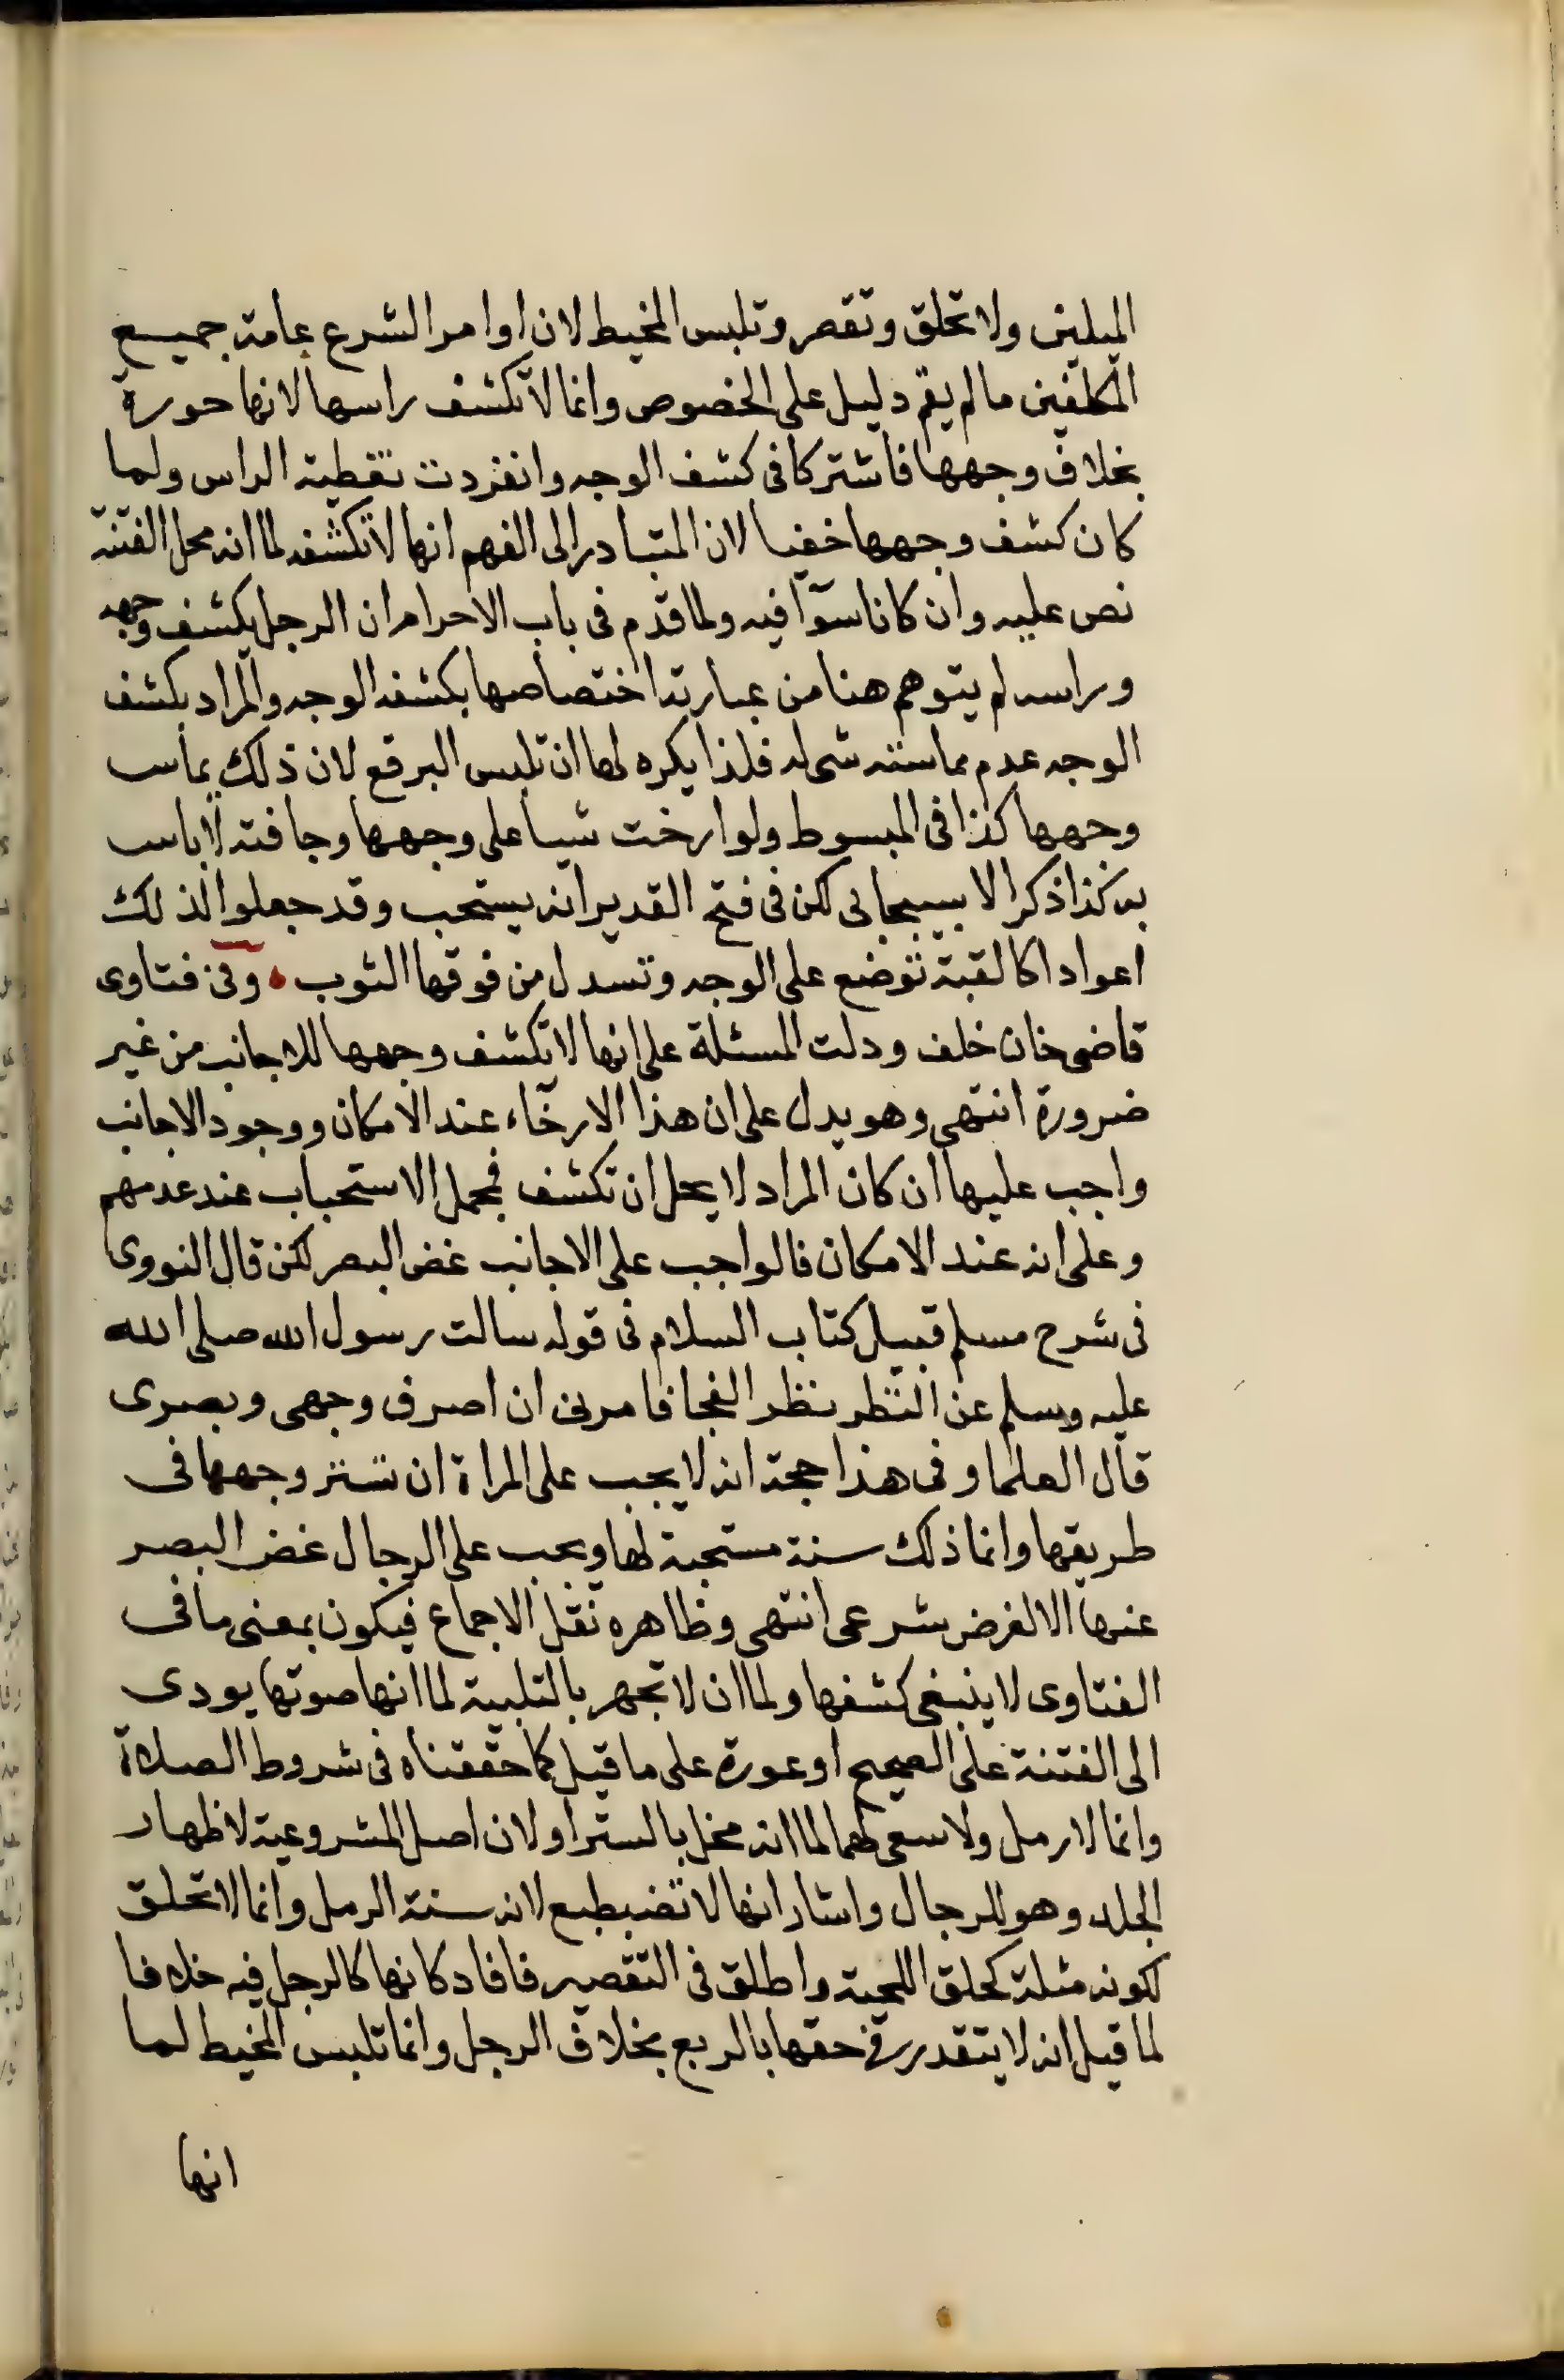 الميلين ولا تحلق وتقصر وتلبس المخيط لان اوامر الشرع عامة جميع
المكلفين ما لم يقم دليل على الخصوص وانما لا تكشف راسها لانها حورة
بخلاف وجهها فاشتركا فى كشف الوجه وانفردت بتغطية الراس ولما
كان كشف وجهها خفيا لان المتبادر الى الفهم انها لا تكشفه لما انه محل الفتنة
نص عليه وان كانا سوا فيه ولما قدم فى باب الاحرام ان الرجل يكشف وجهه
وراسه لم يتوهم هنا من عبارته اختصاصها بكشف الوجه والمراد بكشف
الوجه عدم مماسته شى له فلذا يكره لها ان تلبس البرقع لان ذلك يماس
وجهها كذا فى المبسوط ولو ارخت شيا على وجهها وجافته لا باس
به كذا ذكر الاسبيجابى لكن فى فتح القدير انه يستحب وقد جعلوا لذلك
اعوادا كالقبة توضع على الوجه وتسدل من فوقها الثوب وفى فتاوى
قاضى خان خلف ودلت المسئلة على انها لا تكشف وجهها للاجانب من غير
ضرورة انتهى وهو يدل على ان هذا الارخاء عند الامكان ووجود الاجانب
واجب عليها ان كان المراد لا يحل ان تكشف فمحمل الاستحباب عند عدمهم
وعلى انه عند الامكان فالواجب على الاجانب غض البصر لكن قال النووى
فى شرح مسلم قبيل كتاب السلام فى قوله سالت رسول الله صلى الله
عليه وسلم عن النظر نظر الفجا فامرنى ان اصرف وجهى وبصرى
قال العلما وفى هذا حجة انه لا يجب على المراة ان تستر وجهها فى
طريقها وانما ذلك سنة مستحبة لها ويجب على الرجال غض البصر
عنها الا لغرض شرعى انتهى وظاهره نقل الاجماع فيكون بمعنى ما فى
الفتاوى لا ينبغى كشفها ولما ان لا تجهر بالتلبية لما انها صوتها يودى
الى الفتنة على الصحيح او عورة على ما قيل كما حققناه فى شروط الصلاة
وانما لا رمل ولا سعى لهما لما انه مخل بالستر او لان اصل المشروعية لاظهار
الجلد وهو للرجال واشار انها لا تضطبع لانه سنة الرمل وانما لا تحلق
لكونه مثلة كحلق اللحية واطلق فى التقصير فافاد كانها كالرجل فيه خلافا
لما قيل انه لا يتقدر فى حقها بالربع بخلاف الرجل وانما تلبس المخيط لما
انها